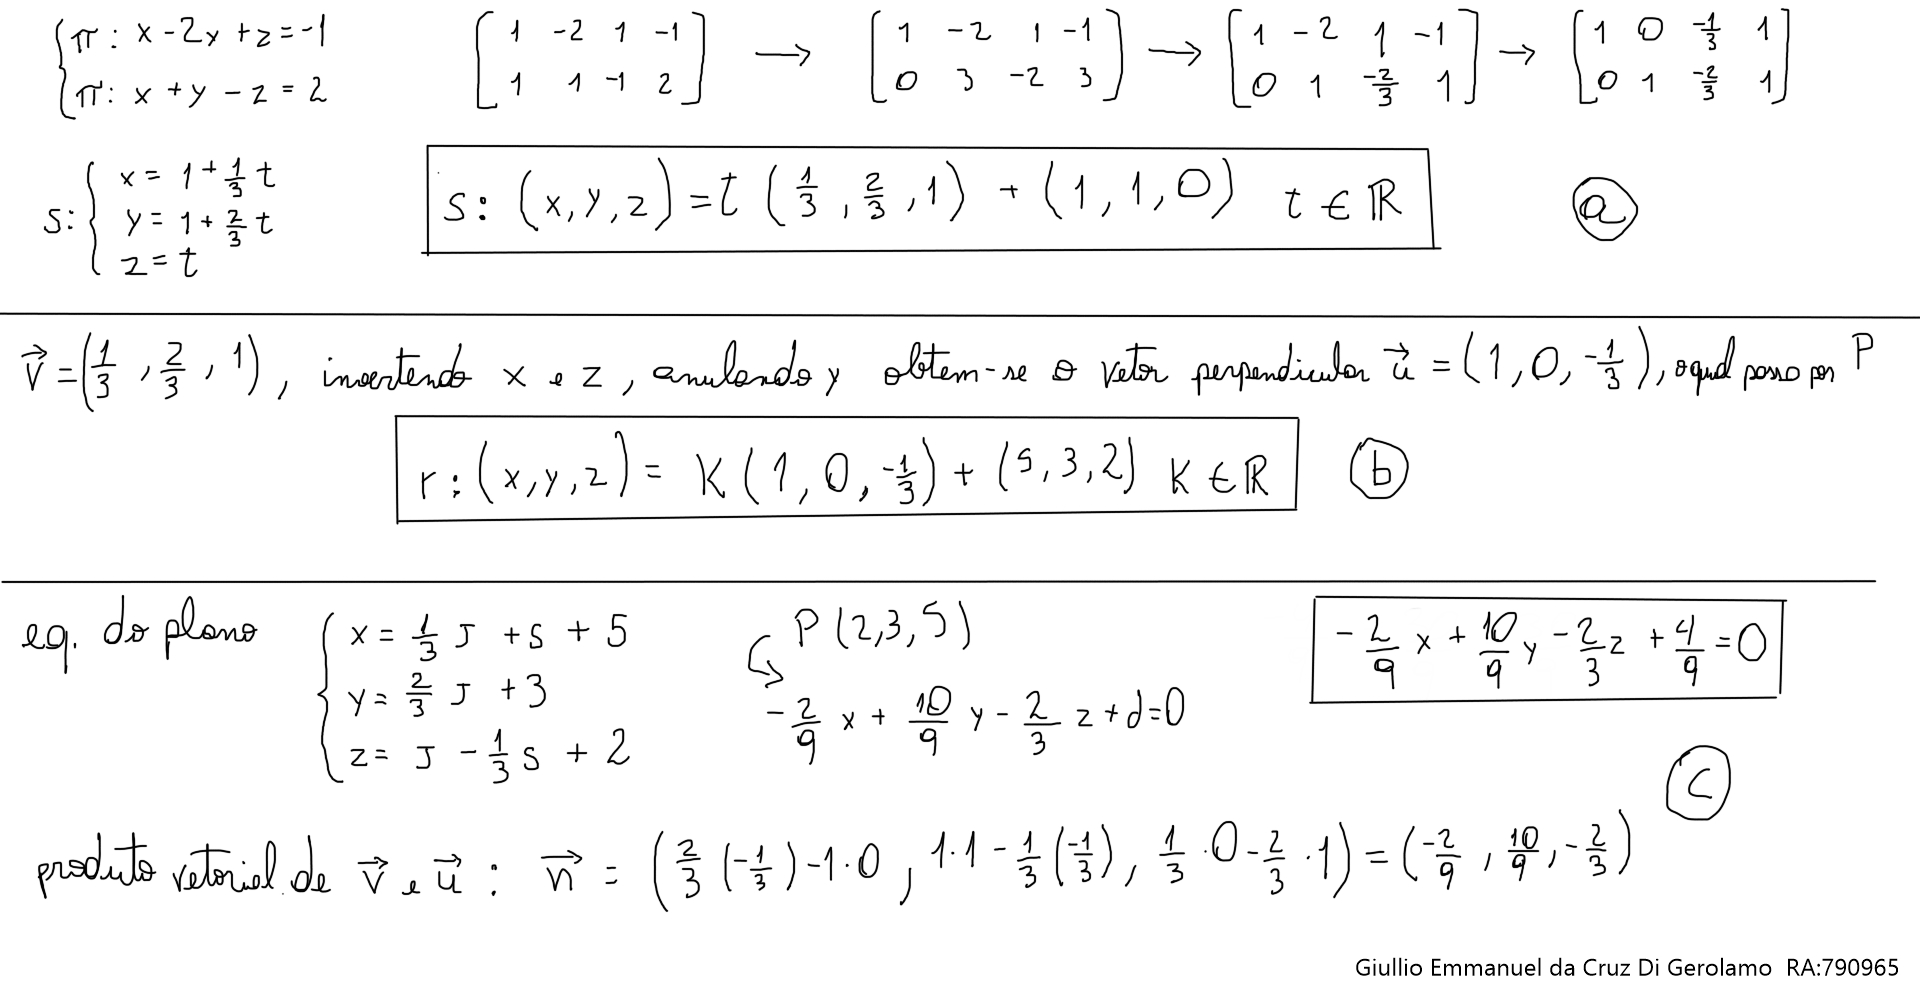 π: x - 2y + z = -1
π': x + y - z = 2
[1 -2 1 -1; 1 1 -1 2] → [1 -2 1 -1; 0 3 -2 3] → [1 -2 1 -1; 0 1 -2/3 1] → [1 0 -1/3 1; 0 1 -2/3 1]
s: { x = 1 + 1/3 t
y = 1 + 2/3 t
z = t
s: (x, y, z) = t (1/3, 2/3, 1) + (1, 1, 0) t ∈ ℝ
a
v⃗ = (1/3, 2/3, 1), invertendo x e z, anulando y obtem-se o vetor perpendicular u⃗ = (1, 0, -1/3), o qual passa por P
r: (x, y, z) = K (1, 0, -1/3) + (5, 3, 2) K ∈ ℝ
b
eq. do plano
x = 1/3 J + S + 5
y = 2/3 J + 3
z = J - 1/3 S + 2
P (2,3,5)
-2/9 x + 10/9 y - 2/3 z + d = 0
-2/9 x + 10/9 y - 2/3 z + 4/9 = 0
c
produto vetorial de v⃗ e u⃗ : n⃗ = (2/3 (-1/3) - 1·0, 1·1 - 1/3 (-1/3), 1/3·0 - 2/3·1) = (-2/9, 10/9, -2/3)
Giullio Emmanuel da Cruz Di Gerolamo RA:790965